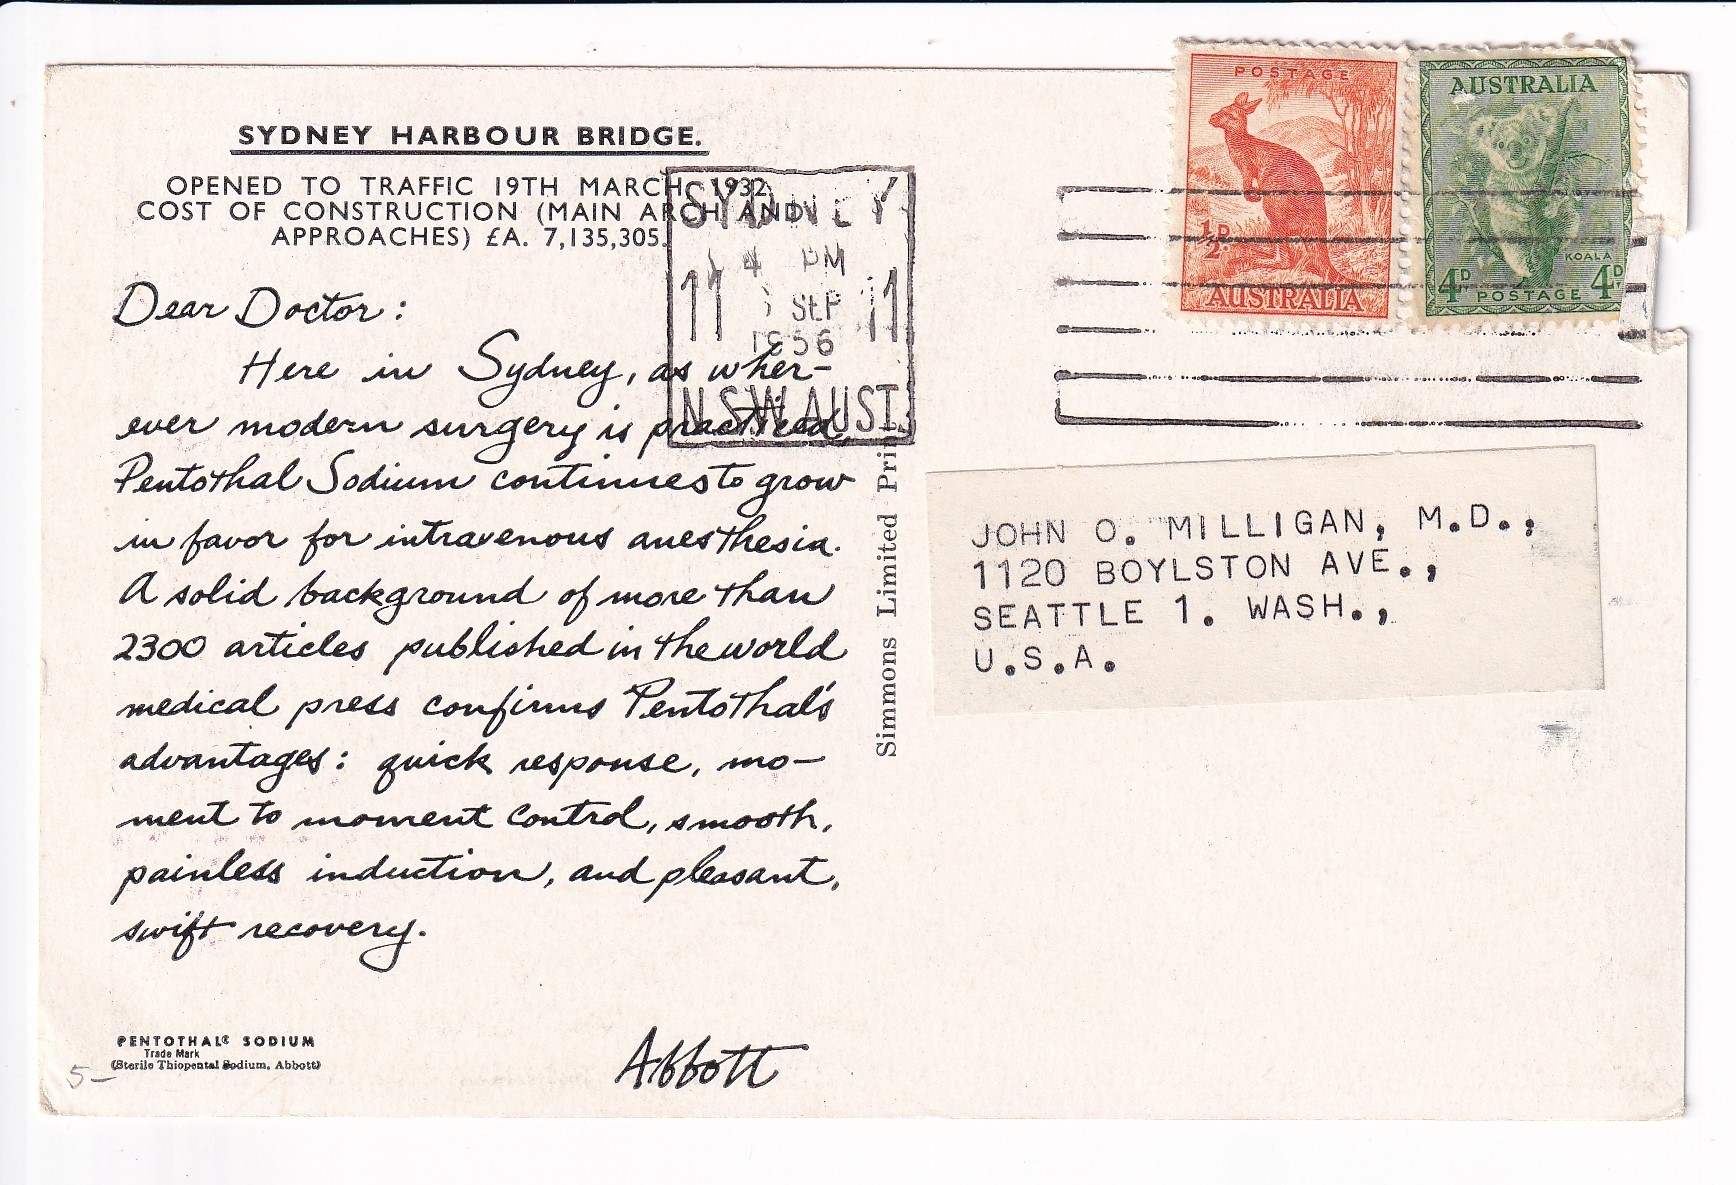 SYDNEY HARBOUR BRIDGE.
OPENED TO TRAFFIC 19TH MARCH, 1932.
COST OF CONSTRUCTION (MAIN ARCH AND
APPROACHES) £A. 7,135,305.
Dear Doctor:
Here in Sydney, as wher-
ever modern surgery is practiced,
Pentothal Sodium continues to grow
in favor for intravenous anesthesia.
A solid background of more than
2300 articles published in the world
medical press confirms Pentothal's
advantages: quick response, mo-
ment to moment control, smooth,
painless induction, and pleasant,
swift recovery.
Abbott
PENTOTHAL® SODIUM
Trade Mark
(Sterile Thiopental Sodium, Abbott)
5-
SYDNEY
4 PM
11 SEP 11
1956
N.S.W. AUST.
Simmons Limited
POSTAGE
½D
AUSTRALIA
AUSTRALIA
KOALA
4D POSTAGE 4D
JOHN O. MILLIGAN, M.D.,
1120 BOYLSTON AVE.,
SEATTLE 1. WASH.,
U.S.A.